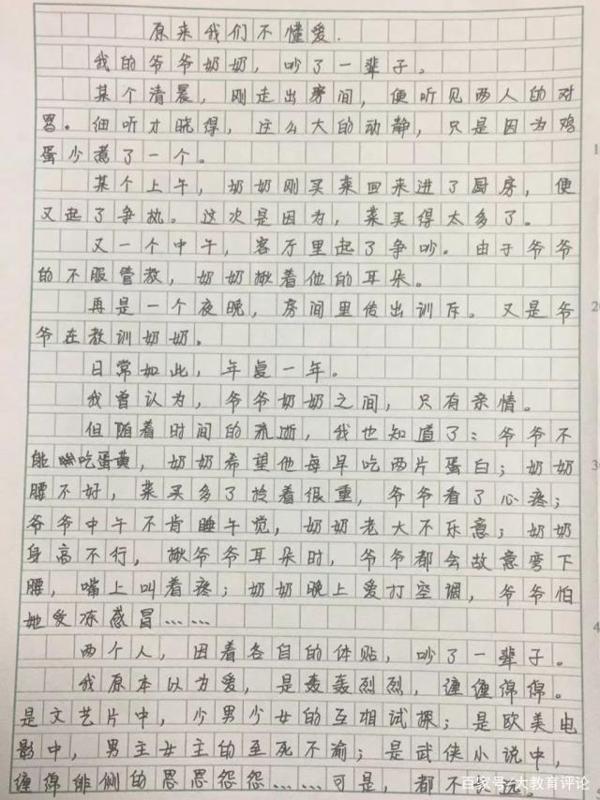 原来我们不懂爱.
我的爷爷奶奶，吵了一辈子。
某个清晨，刚走出房间，便听见两人的对
骂。细听才晓得，这么大的动静，只是因为鸡
蛋少煮了一个。
某个上午，奶奶刚买菜回来进了厨房，便
又起了争执。这次是因为，菜买得太多了。
又一个中午，客厅里起了争吵。由于爷爷
的不服管教，奶奶揪着他的耳朵。
再是一个夜晚，房间里传出训斥。又是爷
爷在教训奶奶。
日常如此，年复一年。
我曾认为，爷爷奶奶之间，只有亲情。
但随着时间的流逝，我也知道了：爷爷不
能吃蛋黄，奶奶希望他每早吃两片蛋白；奶奶
腰不好，菜买多了拎着很重，爷爷看了心疼；
爷爷中午不肯睡午觉，奶奶老大不乐意；奶奶
身高不行，揪爷爷耳朵时，爷爷都会故意弯下
腰，嘴上叫着疼；奶奶晚上爱打空调，爷爷怕
她受冻感冒……
两个人，因着各自的体贴，吵了一辈子。
我原本以为爱，是轰轰烈烈，缠缠绵绵。
是文艺片中，少男少女的互相试探；是欧美电
影中，男主女主的至死不渝；是武侠小说中，
缠绵悱恻的恩恩怨怨……可是，都不
百家号/大教育评论
1
2
3
4